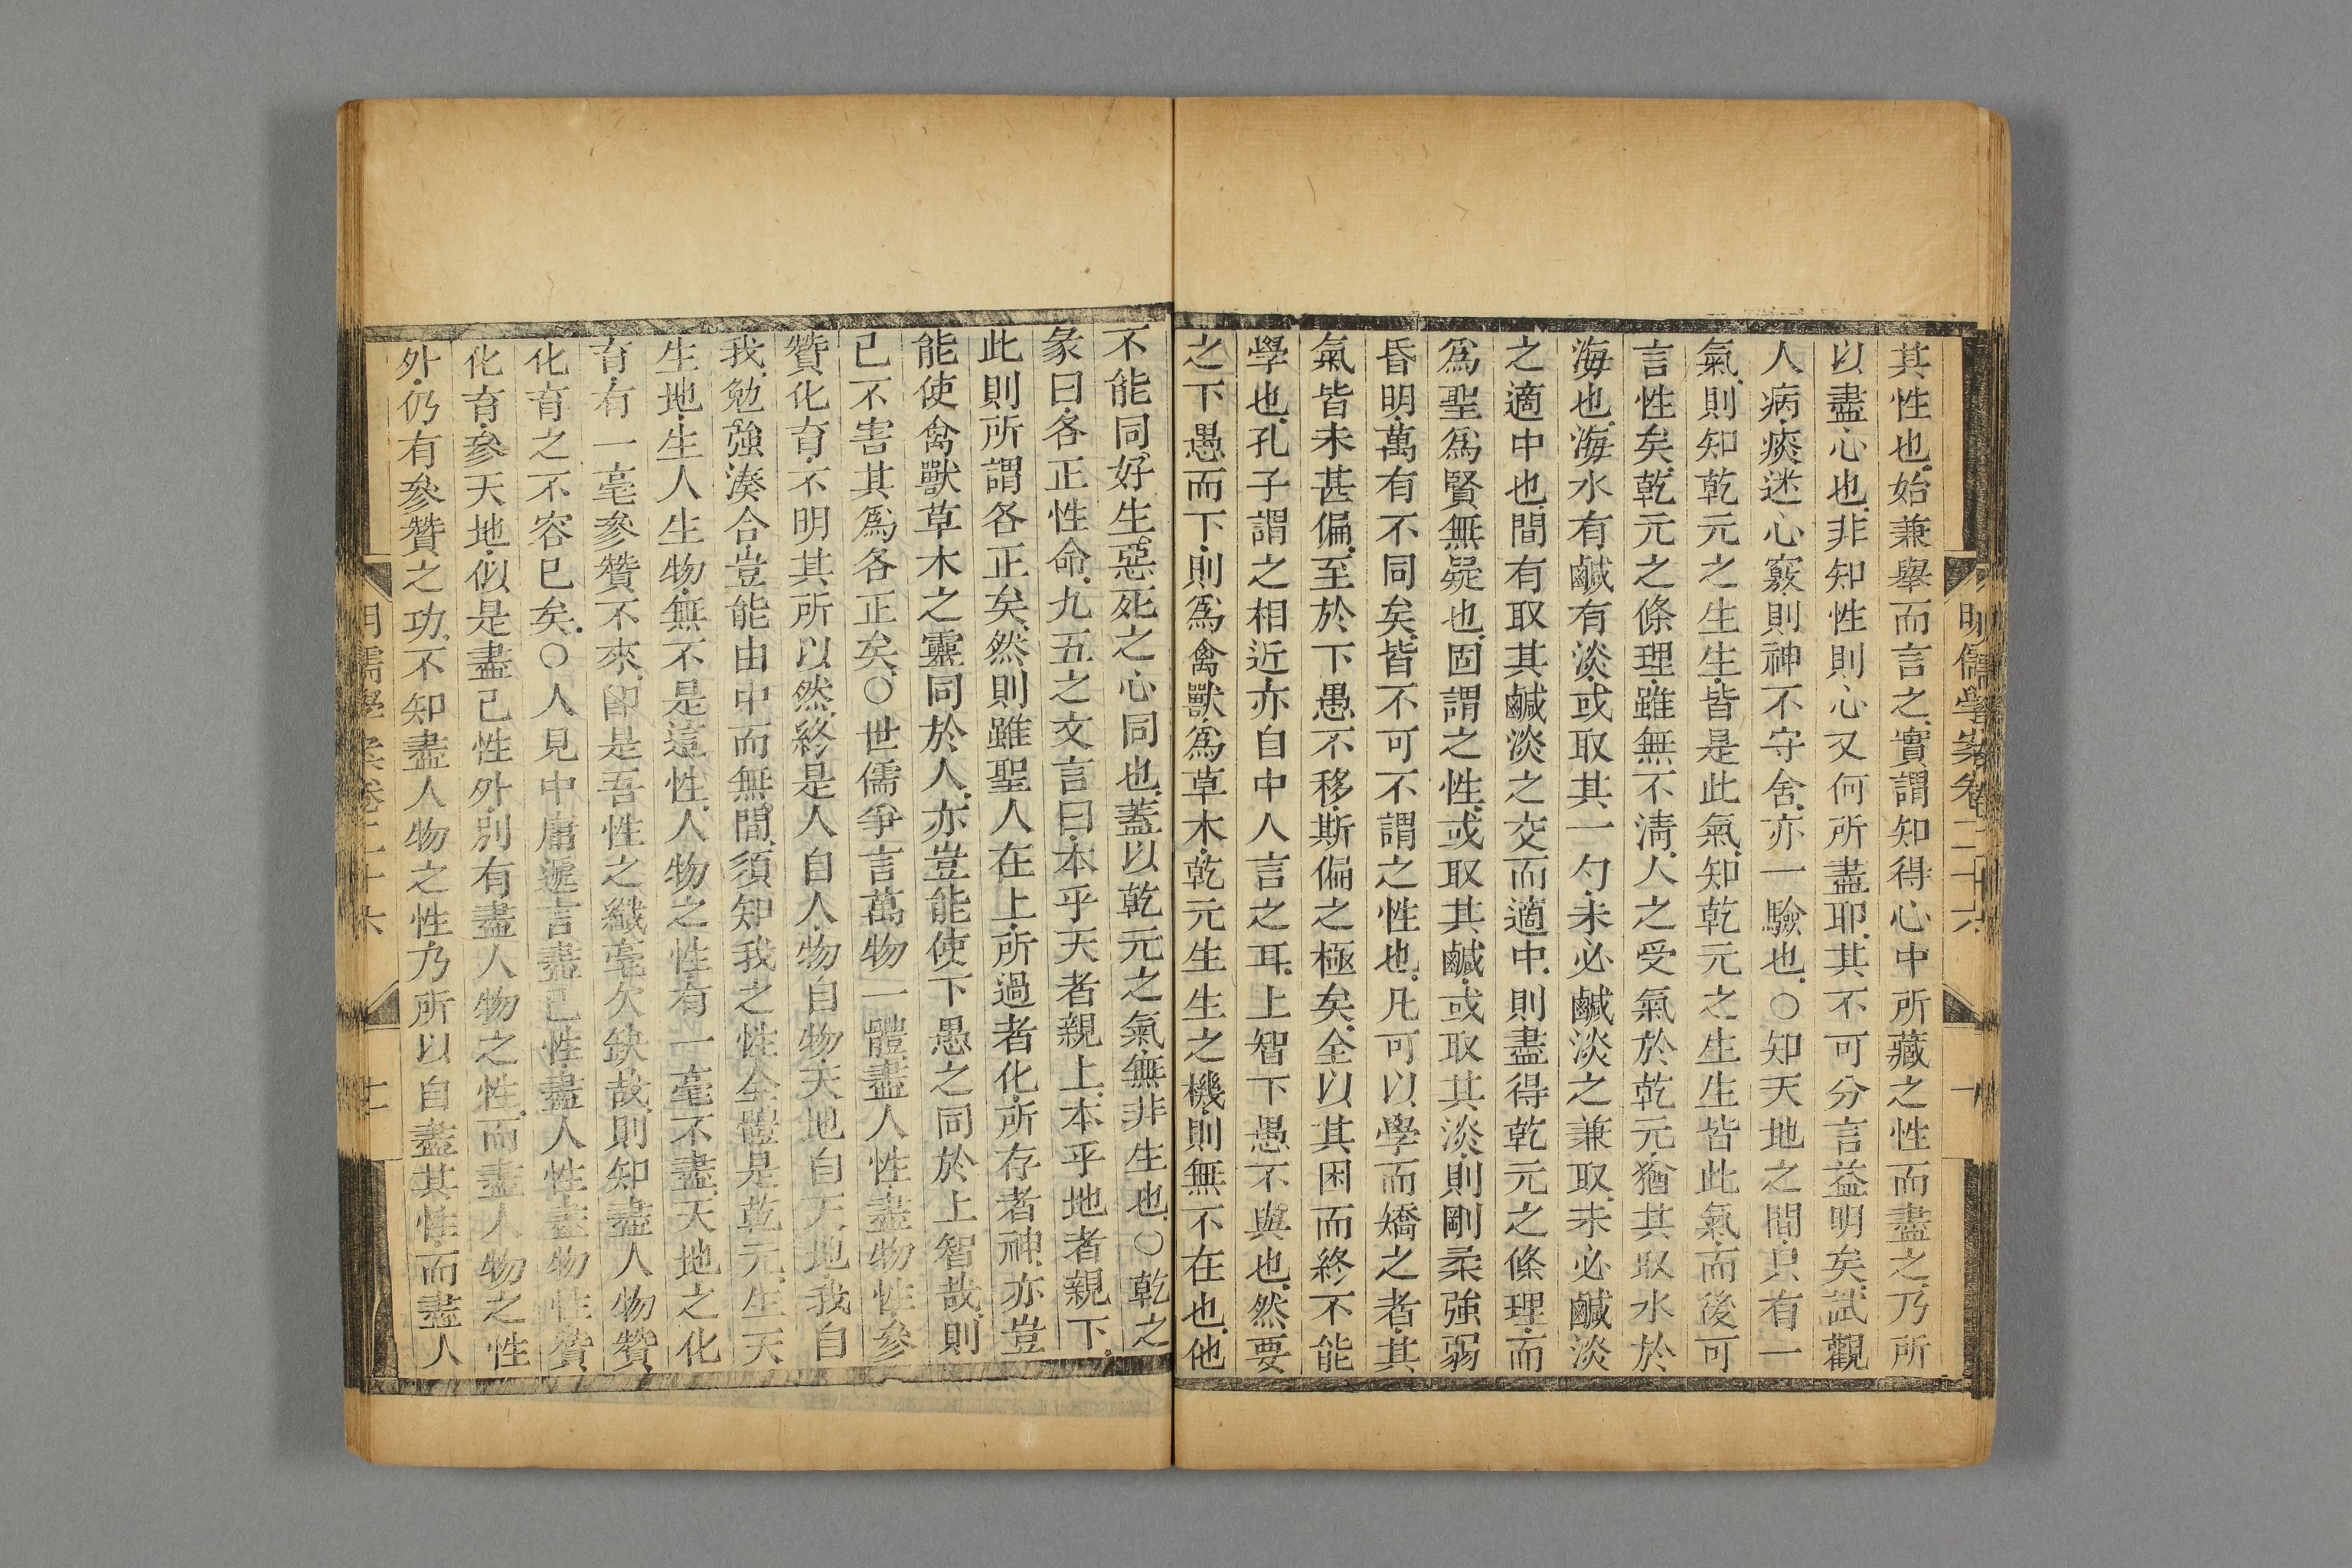 明儒學案卷二十六
其性也始兼舉而言之實謂知得心中所藏之性而盡之乃所
以盡心也非知性則心又何所盡耶其不可分言益明矣試觀
人病痰迷心竅則神不守舍亦一驗也○知天地之間只有一
氣則知乾元之生生皆是此氣知乾元之生生皆此氣而後可
言性矣乾元之條理雖無不清人之受氣於乾元猶其取水於
海也海水有鹹有淡或取其一勺未必鹹淡之兼取未必鹹淡
之適中也間有取其鹹淡之交而適中則盡得乾元之條理而
爲聖爲賢無疑也固謂之性或取其鹹或取其淡則剛柔強弱
昏明萬有不同矣皆不可不謂之性也凡可以學而矯之者其
氣皆未甚偏至於下愚不移斯偏之極矣全以其困而終不能
學也孔子謂之相近亦自中人言之耳上智下愚不與也然要
之下愚而下則爲禽獸爲草木乾元生生之機則無不在也他
不能同好生惡死之心同也蓋以乾元之氣無非生也○乾之
彖曰各正性命九五之文言曰本乎天者親上本乎地者親下
此則所謂各正矣然則雖聖人在上所過者化所存者神亦豈
能使禽獸草木之靈同於人亦豈能使下愚之同於上智哉則
已不害其爲各正矣○世儒爭言萬物一體盡人性盡物性參
贊化育不明其所以然終是人自人物自物天地自天地我自
我勉強湊合豈能由中而無間須知我之性全體是乾元生天
生地生人生物無不是這性人物之性有一毫不盡天地之化
育有一毫參贊不來卽是吾性之纖毫欠缺哉則知盡人物贊
化育之不容已矣○人見中庸遞言盡己性盡人性盡物性贊
化育參天地似是盡己性外別有盡人物之性而盡人物之性
外仍有參贊之功不知盡人物之性乃所以自盡其性而盡人
明儒學案卷二十六